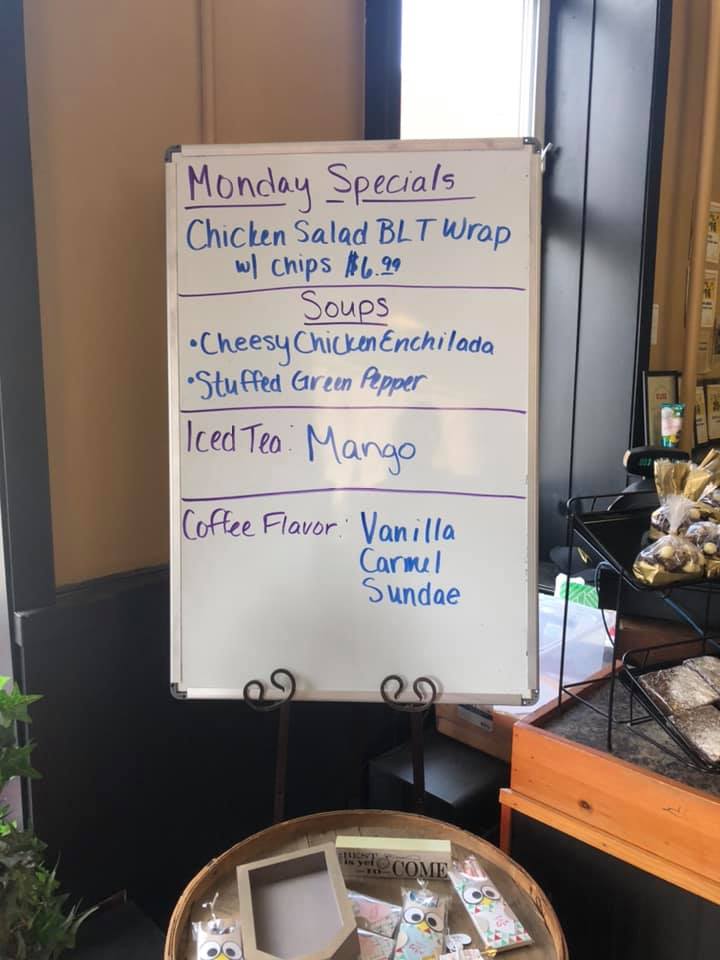 Monday Specials
Chicken Salad BLT Wrap
w/ chips $6.99
Soups
• Cheesy Chicken Enchilada
• Stuffed Green Pepper
Iced Tea: Mango
Coffee Flavor: Vanilla
Carmel
Sundae
BEST
is yet
TO COME